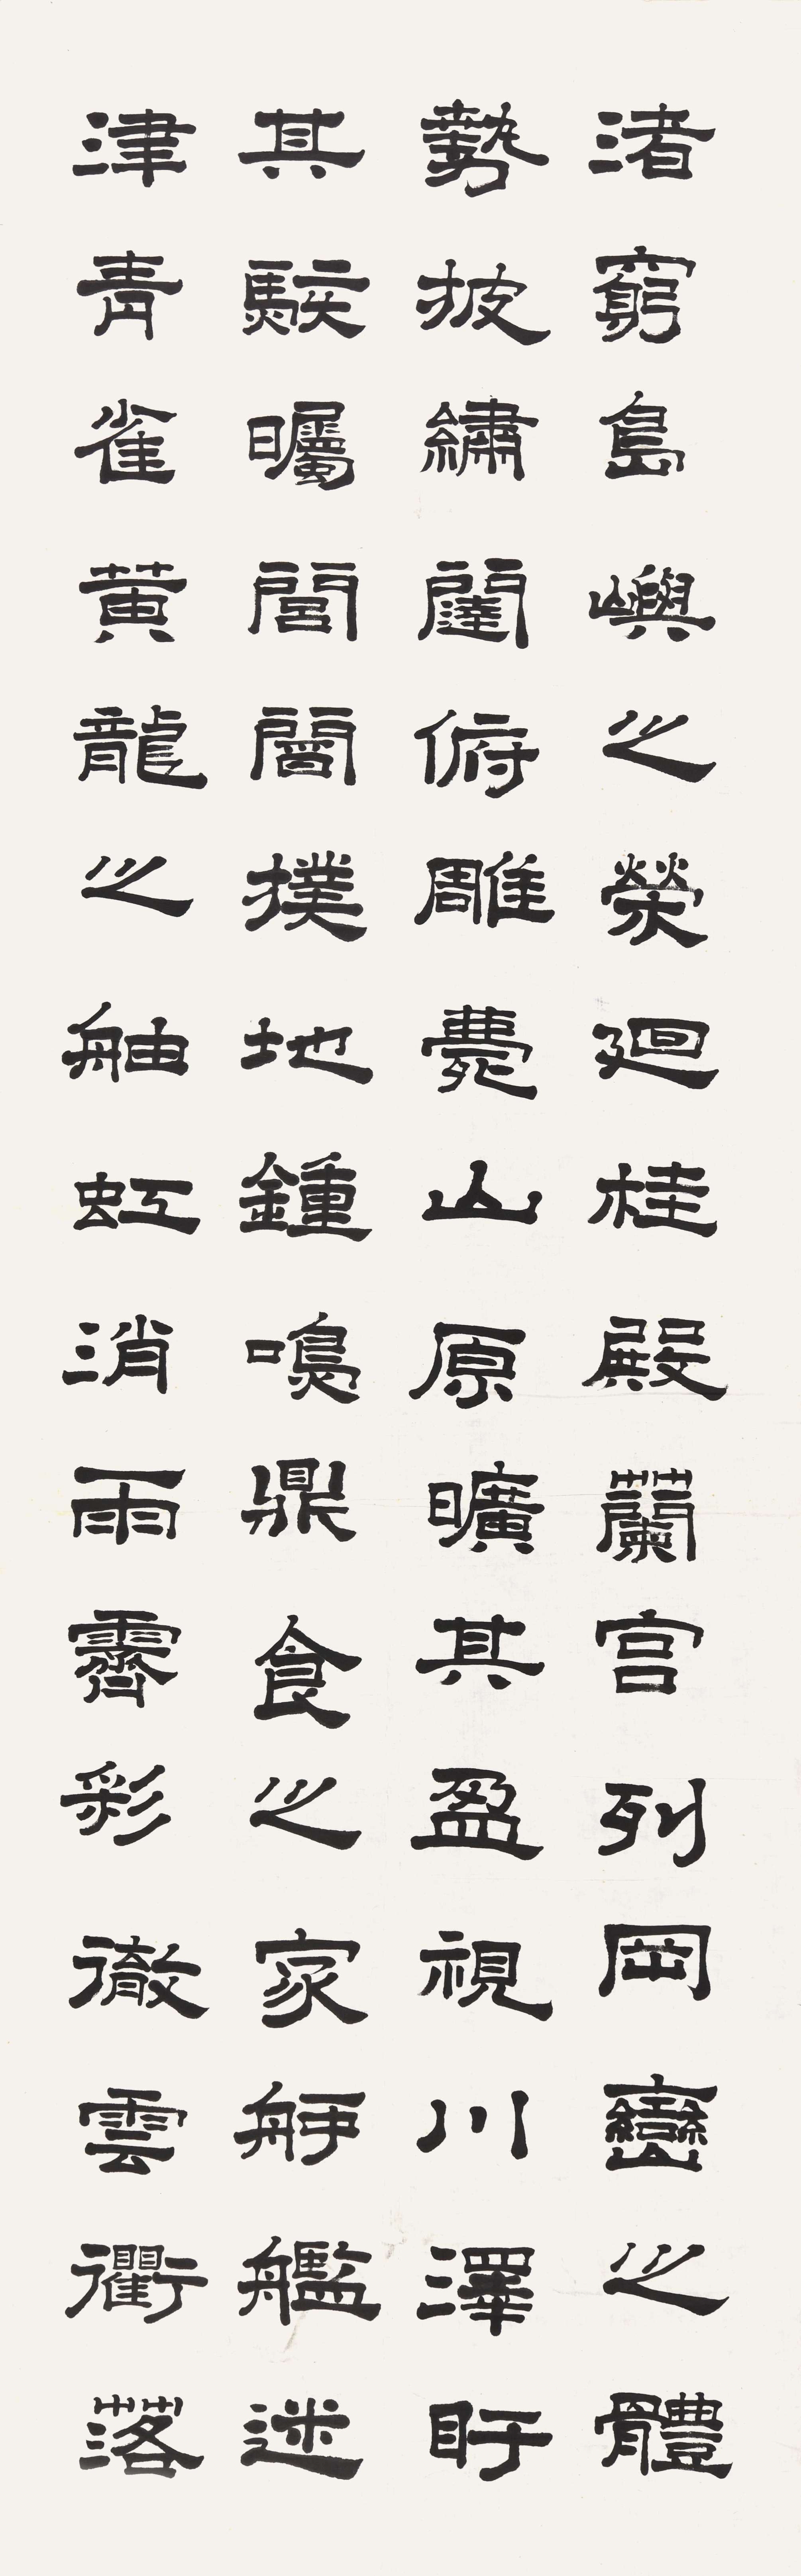 渚窮島嶼之縈廻桂殿蘭宫列岡巒之體
勢披繡闥俯雕甍山原曠其盈視川澤盱
其駭矚閭閻撲地鍾鳴鼎食之家舸艦迷
津青雀黄龍之舳虹消雨霽彩徹雲衢落